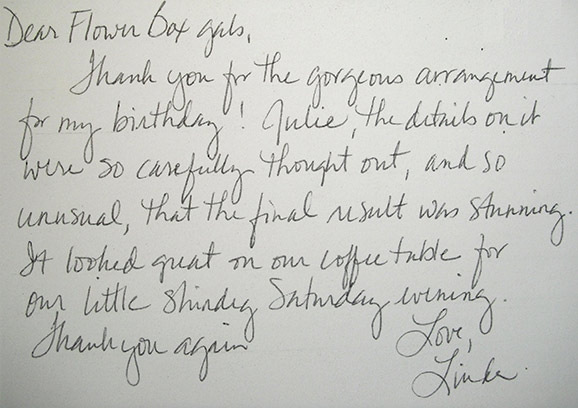 Dear Flower Box gals,
Thank you for the gorgeous arrangement
for my birthday! Julie, the details on it
were so carefully thought out, and so
unusual, that the final result was stunning.
It looked great on our coffee table for
our little shindig Saturday evening.
Thank you again
Love,
Linda